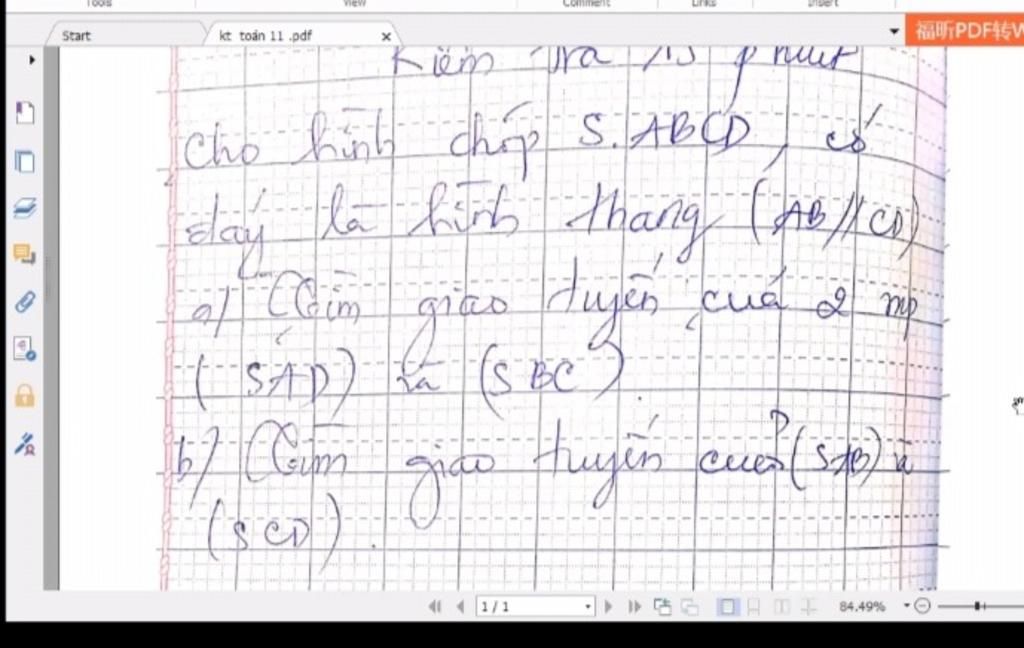 Tools View Comment Links Insert
Start kt toán 11 .pdf x 福昕PDF转W
Kiểm tra 15 phút
Cho hình chóp S.ABCD, có
đáy là hình thang (AB//CD)
a) Tìm giao tuyến của 2 mp
(SAD) và (SBC)
b) Tìm giao tuyến của (SAB) và
(SCD).
1 / 1 84.49%